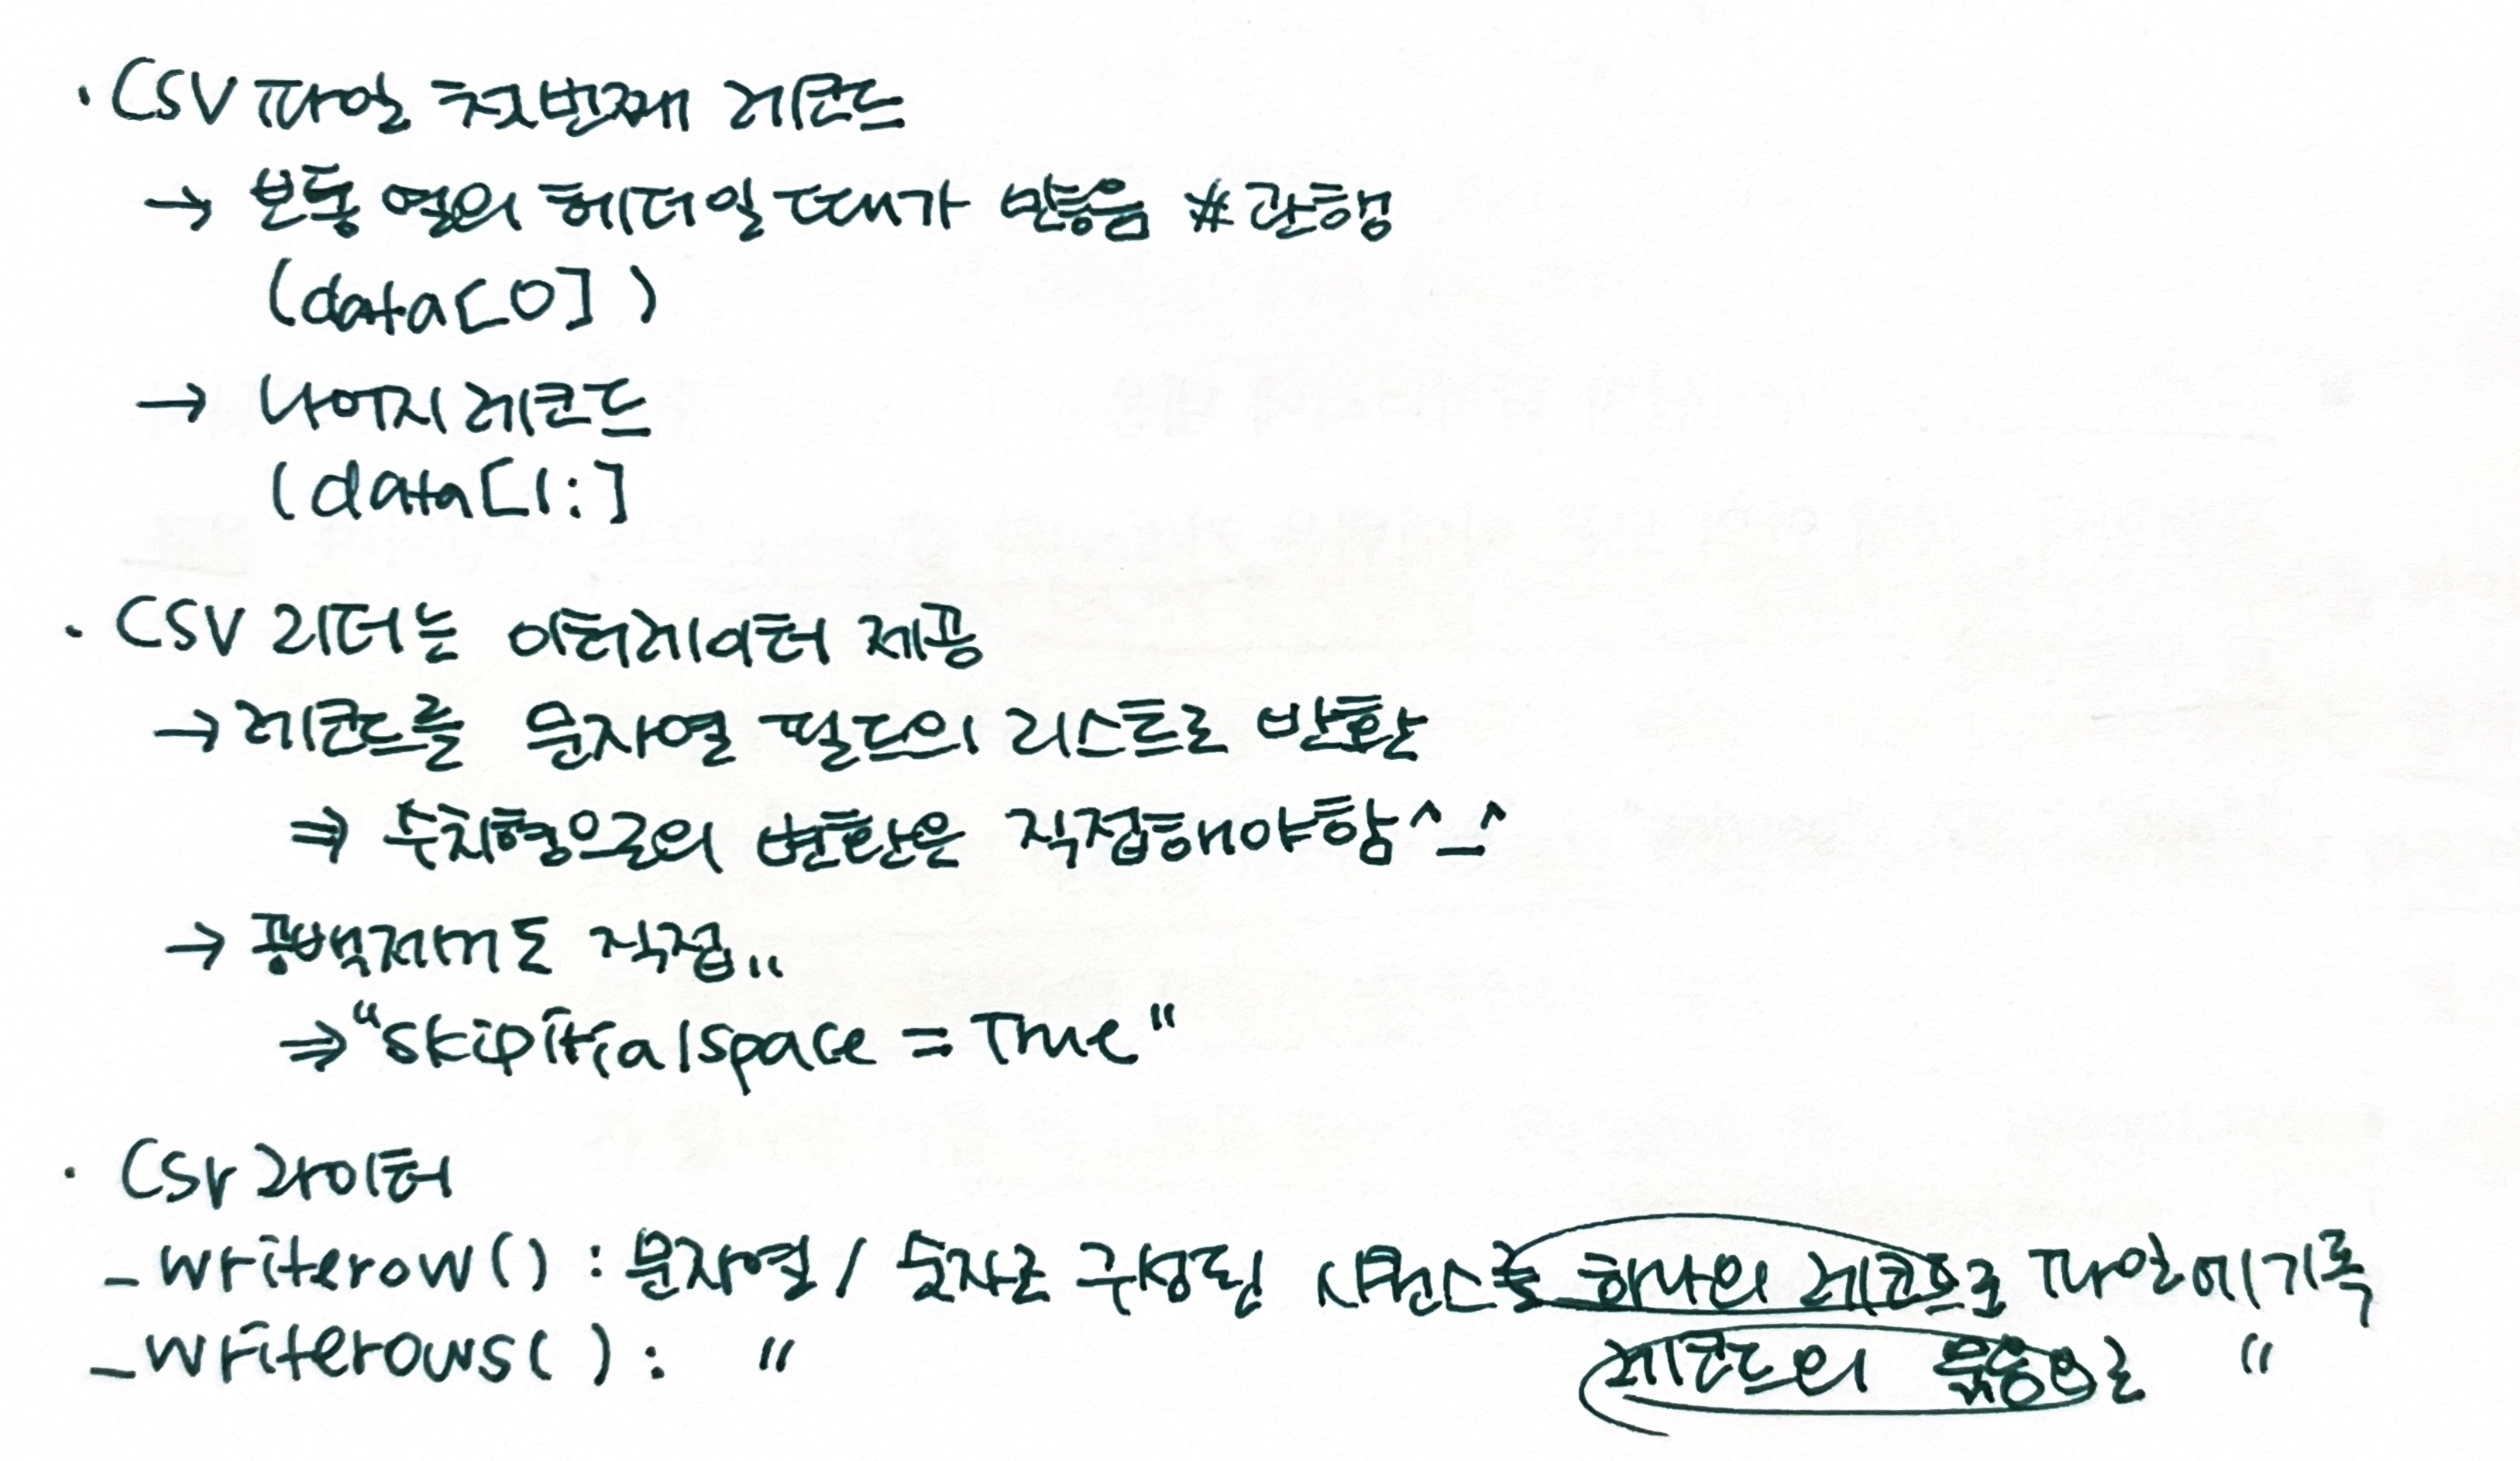 · CSV 파일 첫번째 레코드
→ 보통 열의 헤더일 때가 많음 #관행
(data[0])
→ 나머지 레코드
(data[1:]
· CSV 리더는 이터레이터 제공
→ 레코드를 문자열 필드의 리스트로 반환
⇒ 수치형으로의 변환은 직접해야함^_^
→ 공백제거도 직접..
⇒ "skipitialspace = True"
· CSV 라이터
- writerow() : 문자열 / 숫자로 구성된 시퀀스를 하나의 레코드로 파일에 기록
- writerows() : " 레코드의 묶음으로 "